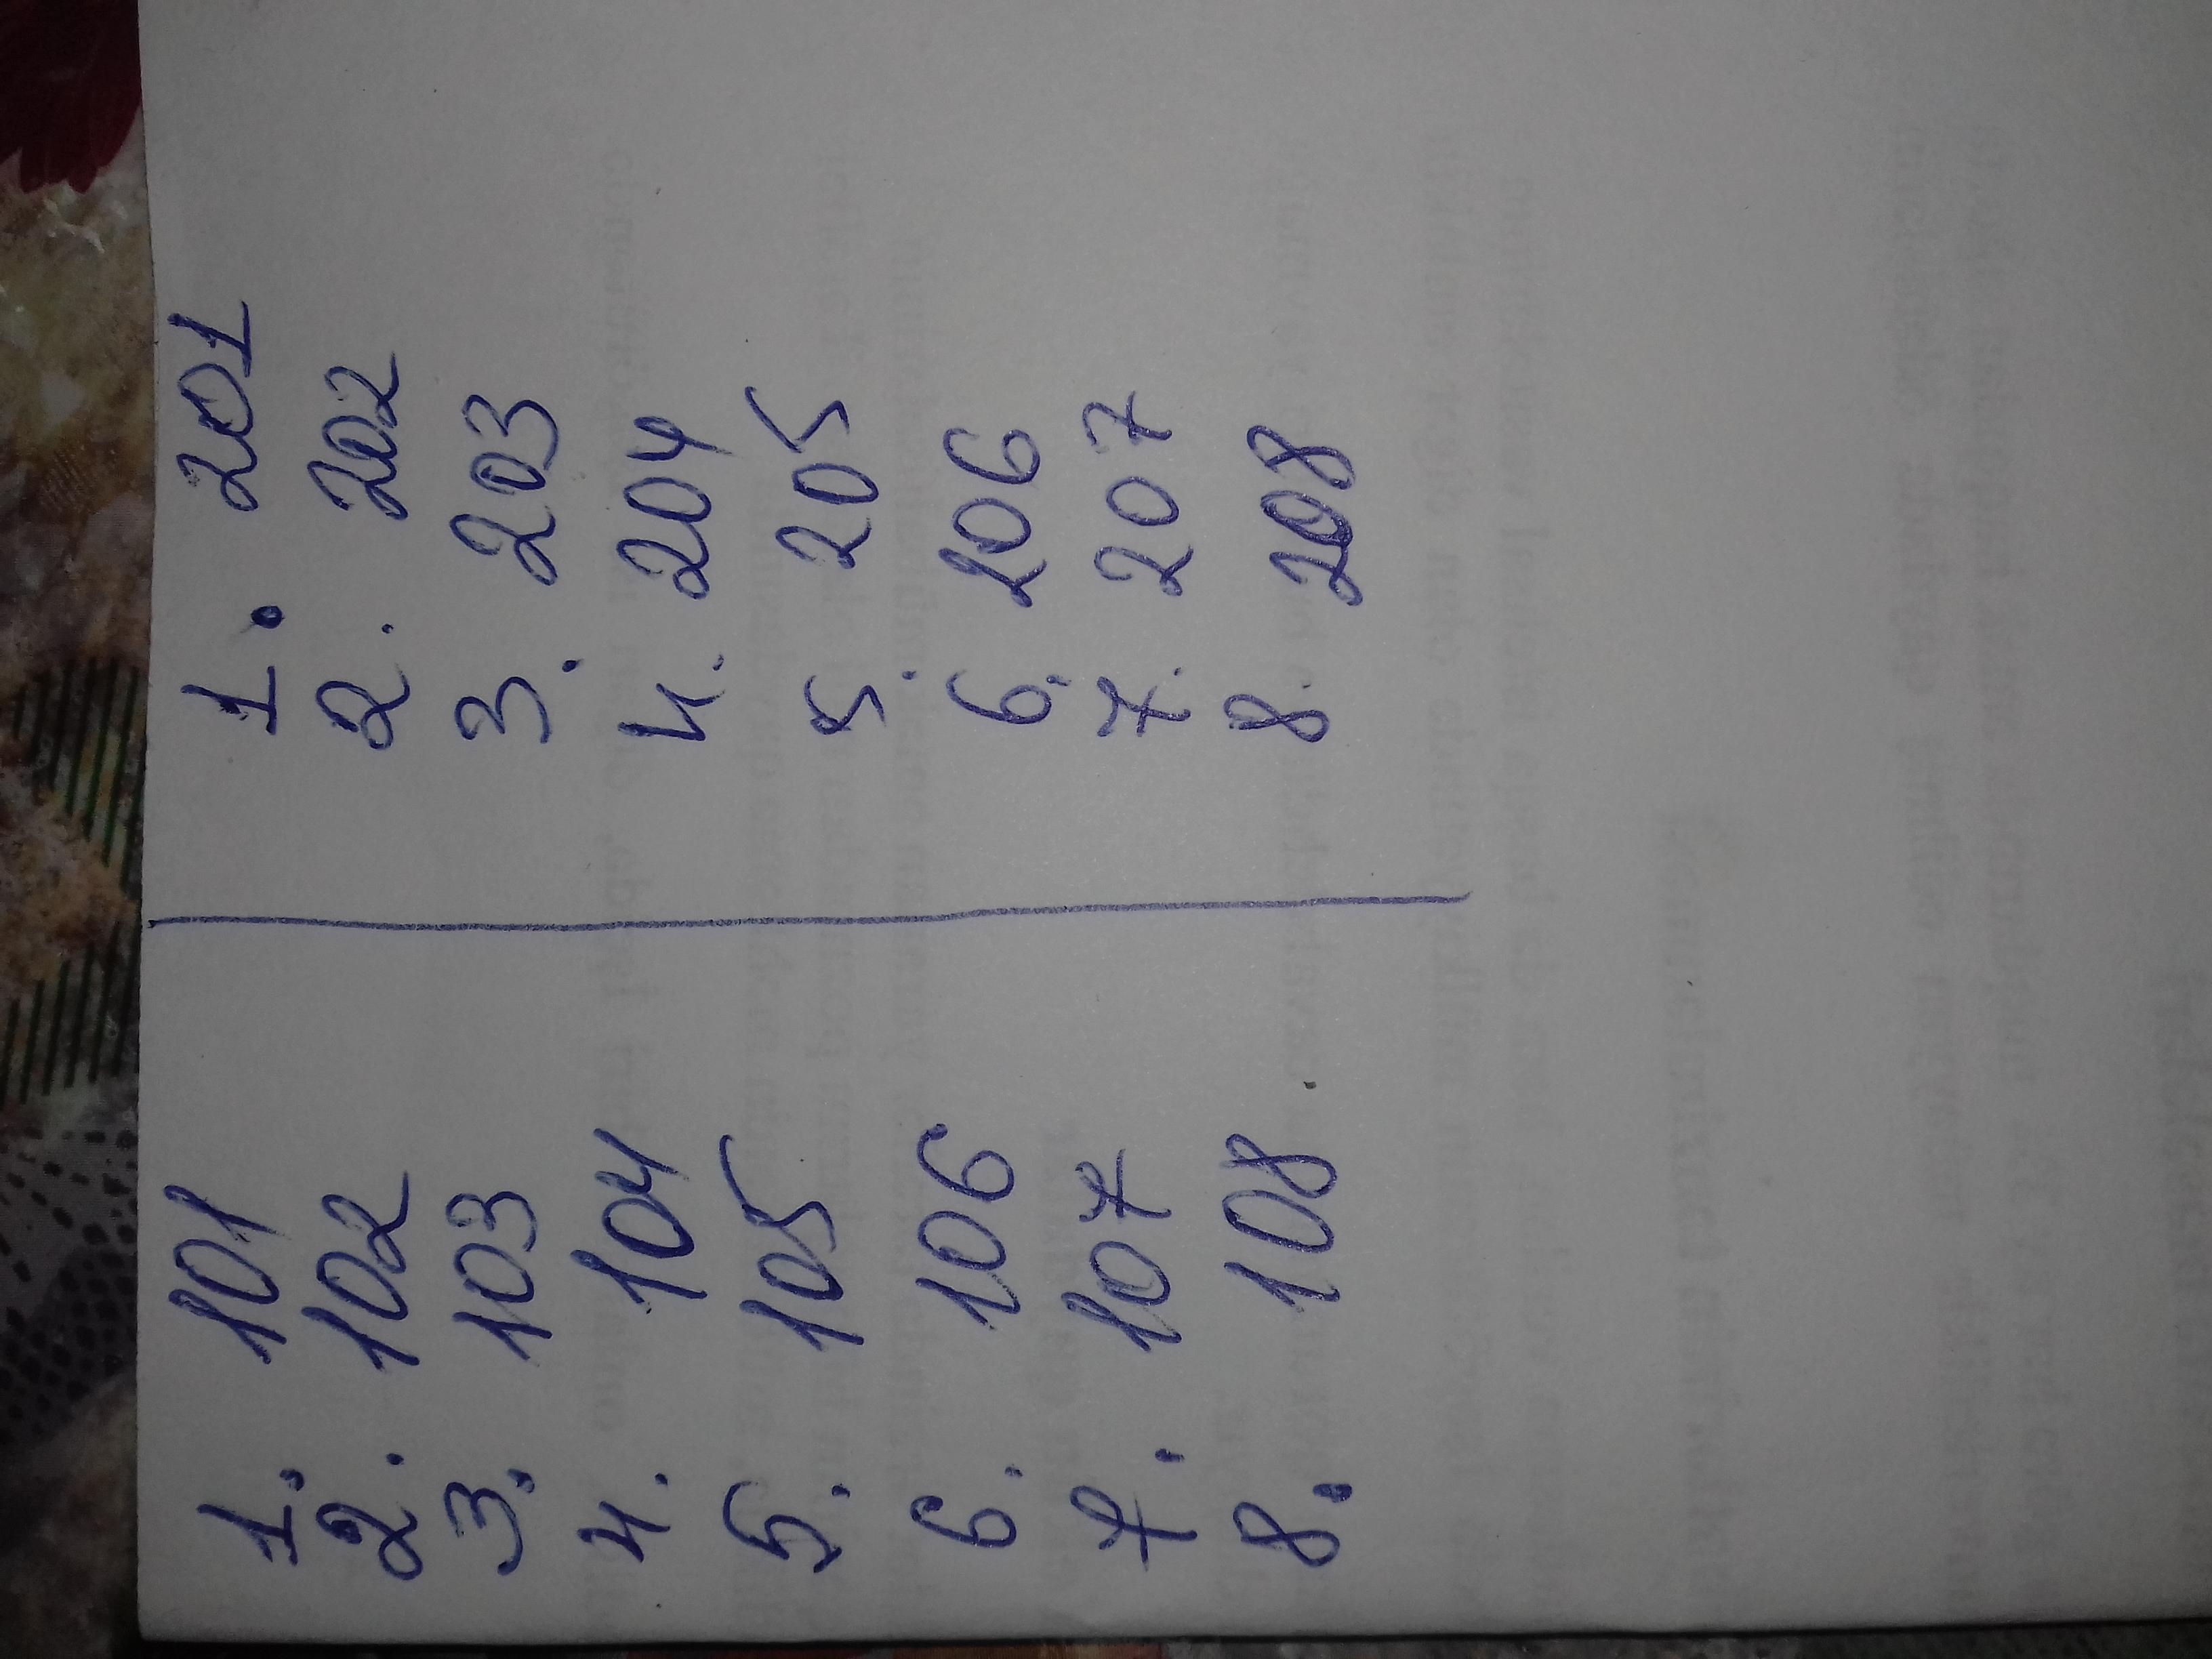 1. 101
2. 102
3. 103
4. 104
5. 105
6. 106
7. 107
8. 108
1. 201
2. 202
3. 203
4. 204
5. 205
6. 206
7. 207
8. 208